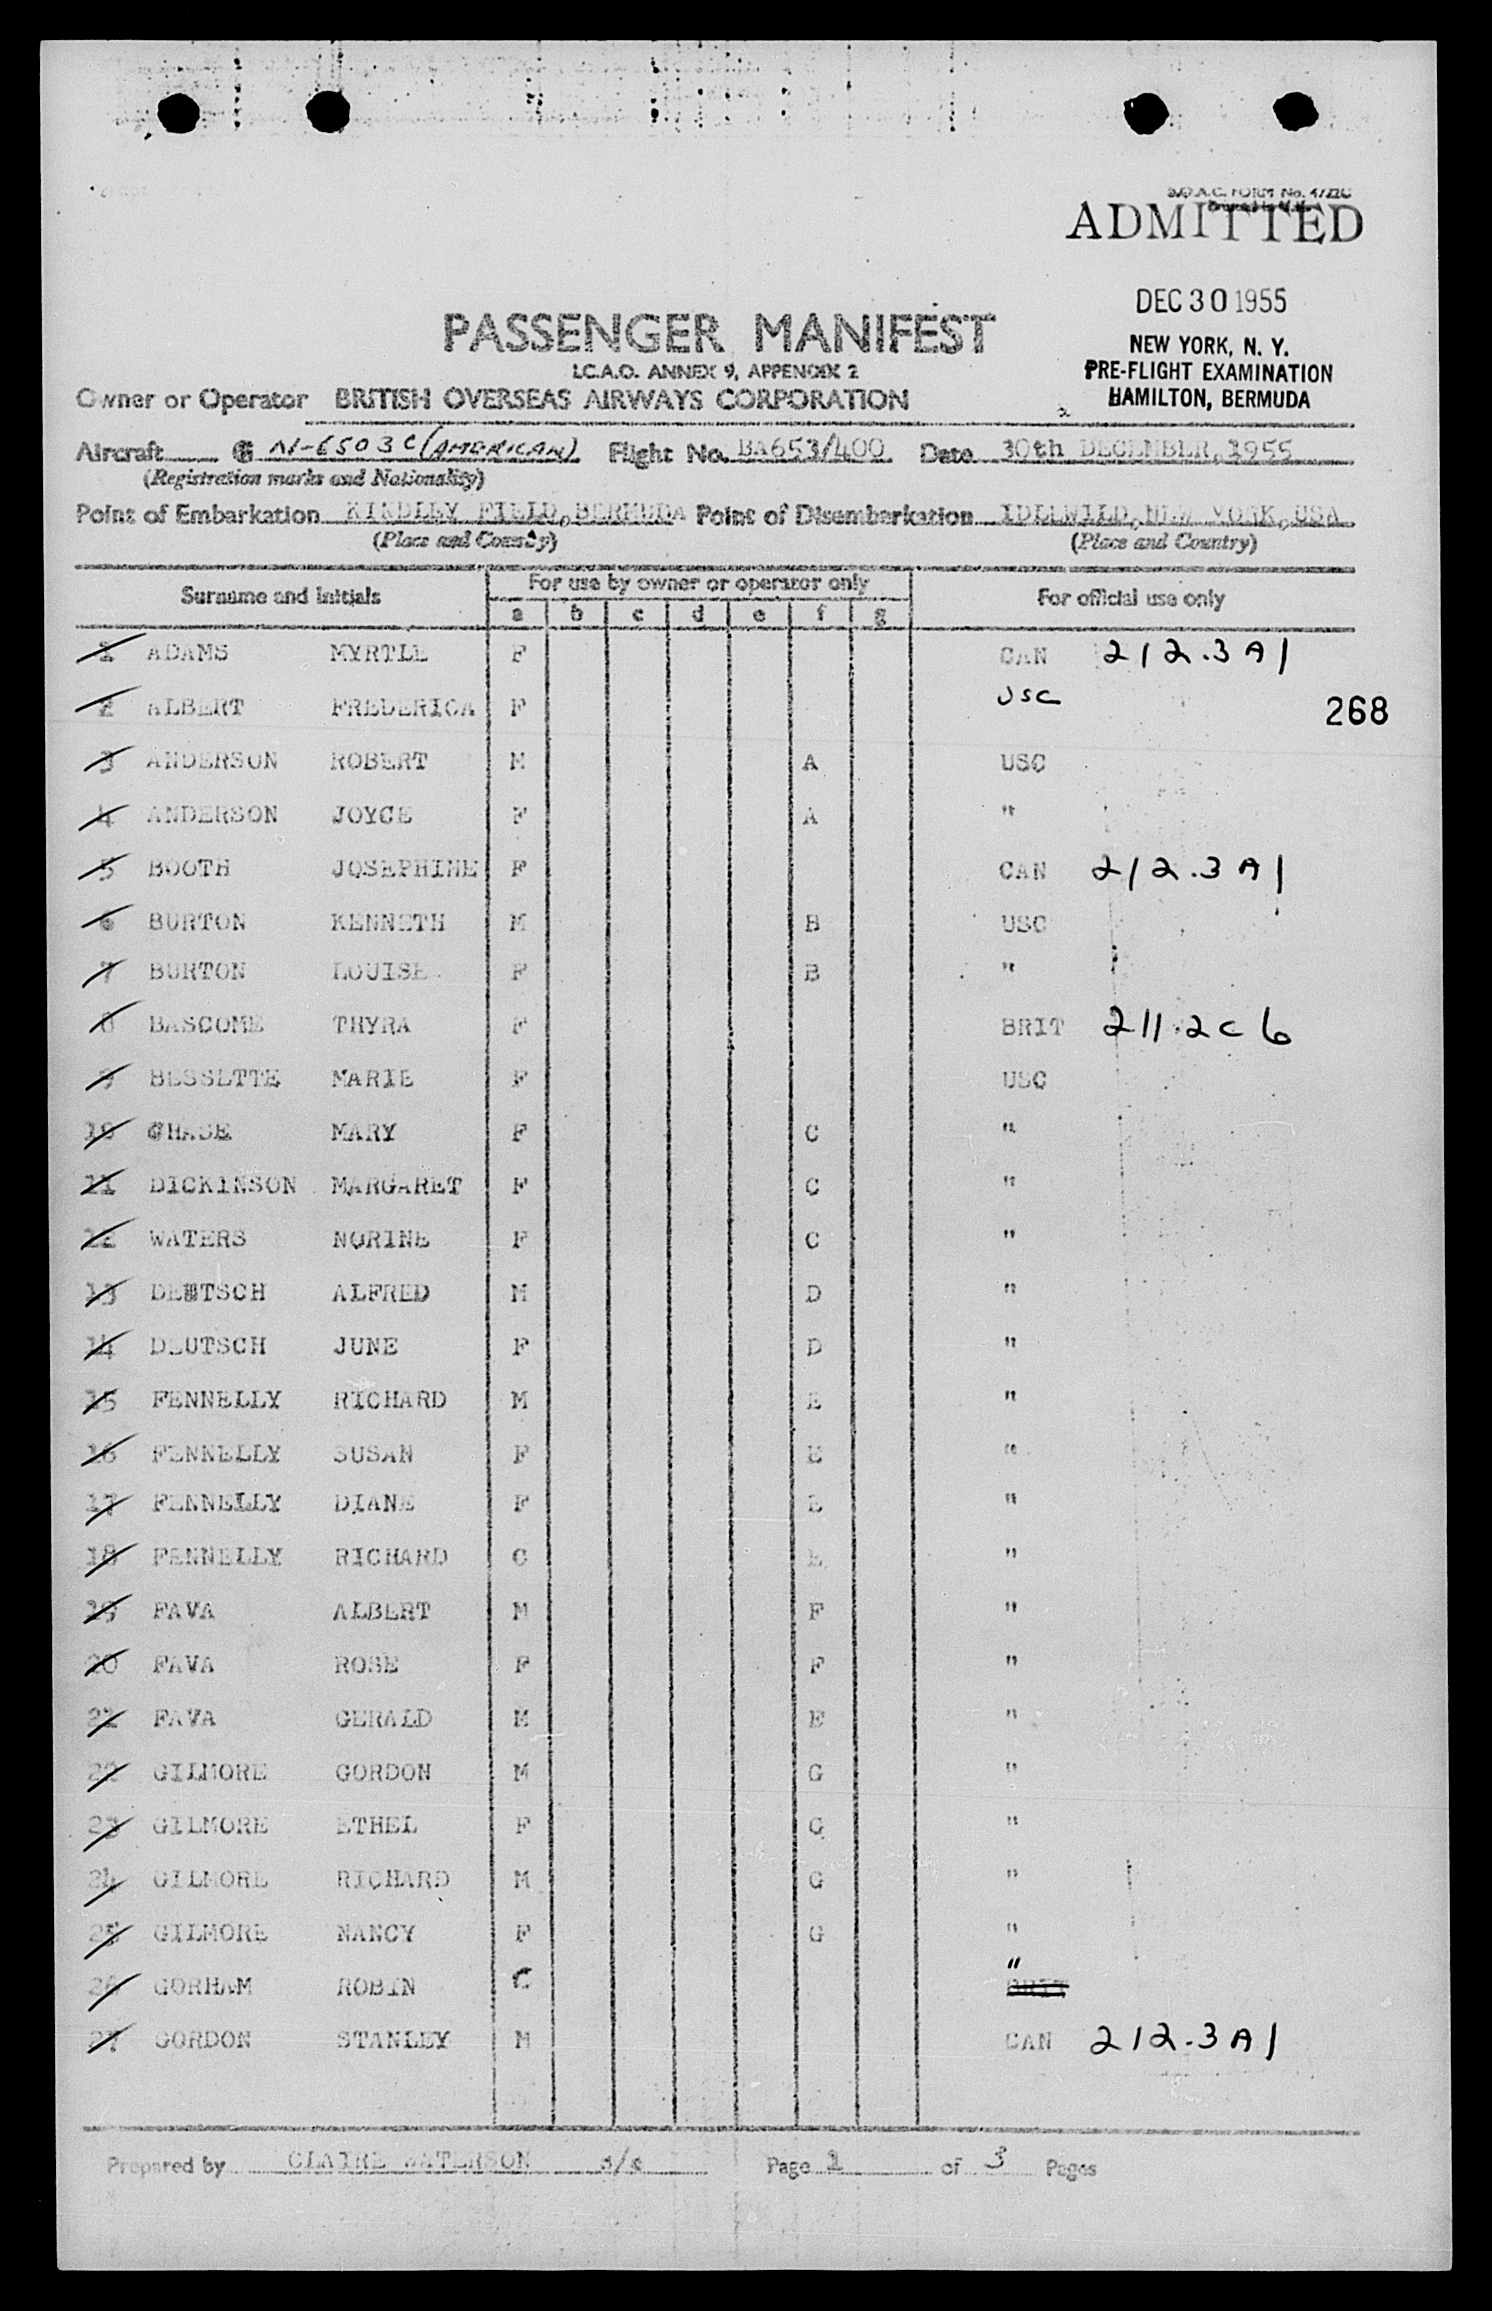 B.O.A.C. FORM No. 4722C
ADMITTED
DEC 30 1955
NEW YORK, N. Y.
PRE-FLIGHT EXAMINATION
HAMILTON, BERMUDA
PASSENGER MANIFEST
I.C.A.O. ANNEX 9, APPENDIX 2
Owner or Operator BRITISH OVERSEAS AIRWAYS CORPORATION
Aircraft N-6503C (AMERICAN) Flight No. BA653/400 Date 30th DECEMBER, 1955
(Registration marks and Nationality)
Point of Embarkation KINDLEY FIELD, BERMUDA Point of Disembarkation IDLEWILD, NEW YORK, USA
(Place and Country) (Place and Country)
Surname and initials For use by owner or operator only For official use only
a b c d e f g
1 ADAMS MYRTLE F CAN 212.3A1
2 ALBERT FREDERICA F USC
268
3 ANDERSON ROBERT M A USC
4 ANDERSON JOYCE F A "
5 BOOTH JOSEPHINE F CAN 212.3A1
6 BURTON KENNETH M B USC
7 BURTON LOUISE F B "
8 BASCOME THYRA F BRIT 211.2C6
9 BESSETTE MARIE F USC
10 CHASE MARY F C "
11 DICKINSON MARGARET F C "
12 WATERS NORINE F C "
13 DEUTSCH ALFRED M D "
14 DEUTSCH JUNE F D "
15 FENNELLY RICHARD M E "
16 FENNELLY SUSAN F E "
17 FENNELLY DIANE F E "
18 FENNELLY RICHARD C E "
19 FAVA ALBERT M F "
20 FAVA ROSE F F "
21 FAVA GERALD M F "
22 GILMORE GORDON M G "
23 GILMORE ETHEL F G "
24 GILMORE RICHARD M G "
25 GILMORE NANCY F G "
26 GORHAM ROBIN C " BRIT
27 GORDON STANLEY M CAN 212.3A1
Prepared by CLAIRE WATERSON s/s Page 1 of 3 Pages